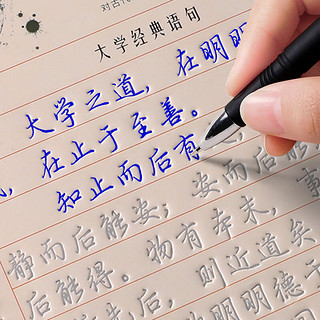 对古
大学经典语句
大学之道，在明明
，在止于至善。
知止而后有
静而后能安；安而后
后能得。物有本末，事
先后，则近道矣
明明德于